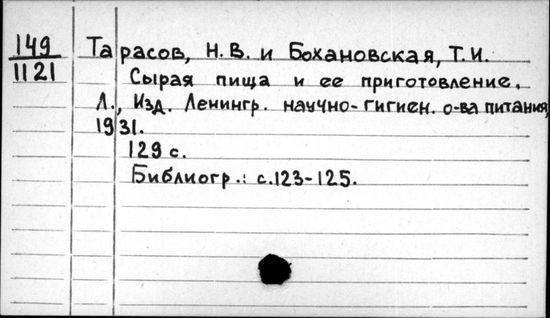 149
1121
Тарасов, Н.В. и Бохановская, Т.И.
Сырая пища и ее приготовление.
Л., Изд. Ленингр. научно-гигиен. о-ва питания,
1931.
129 с.
Библиогр.: с.123-125.